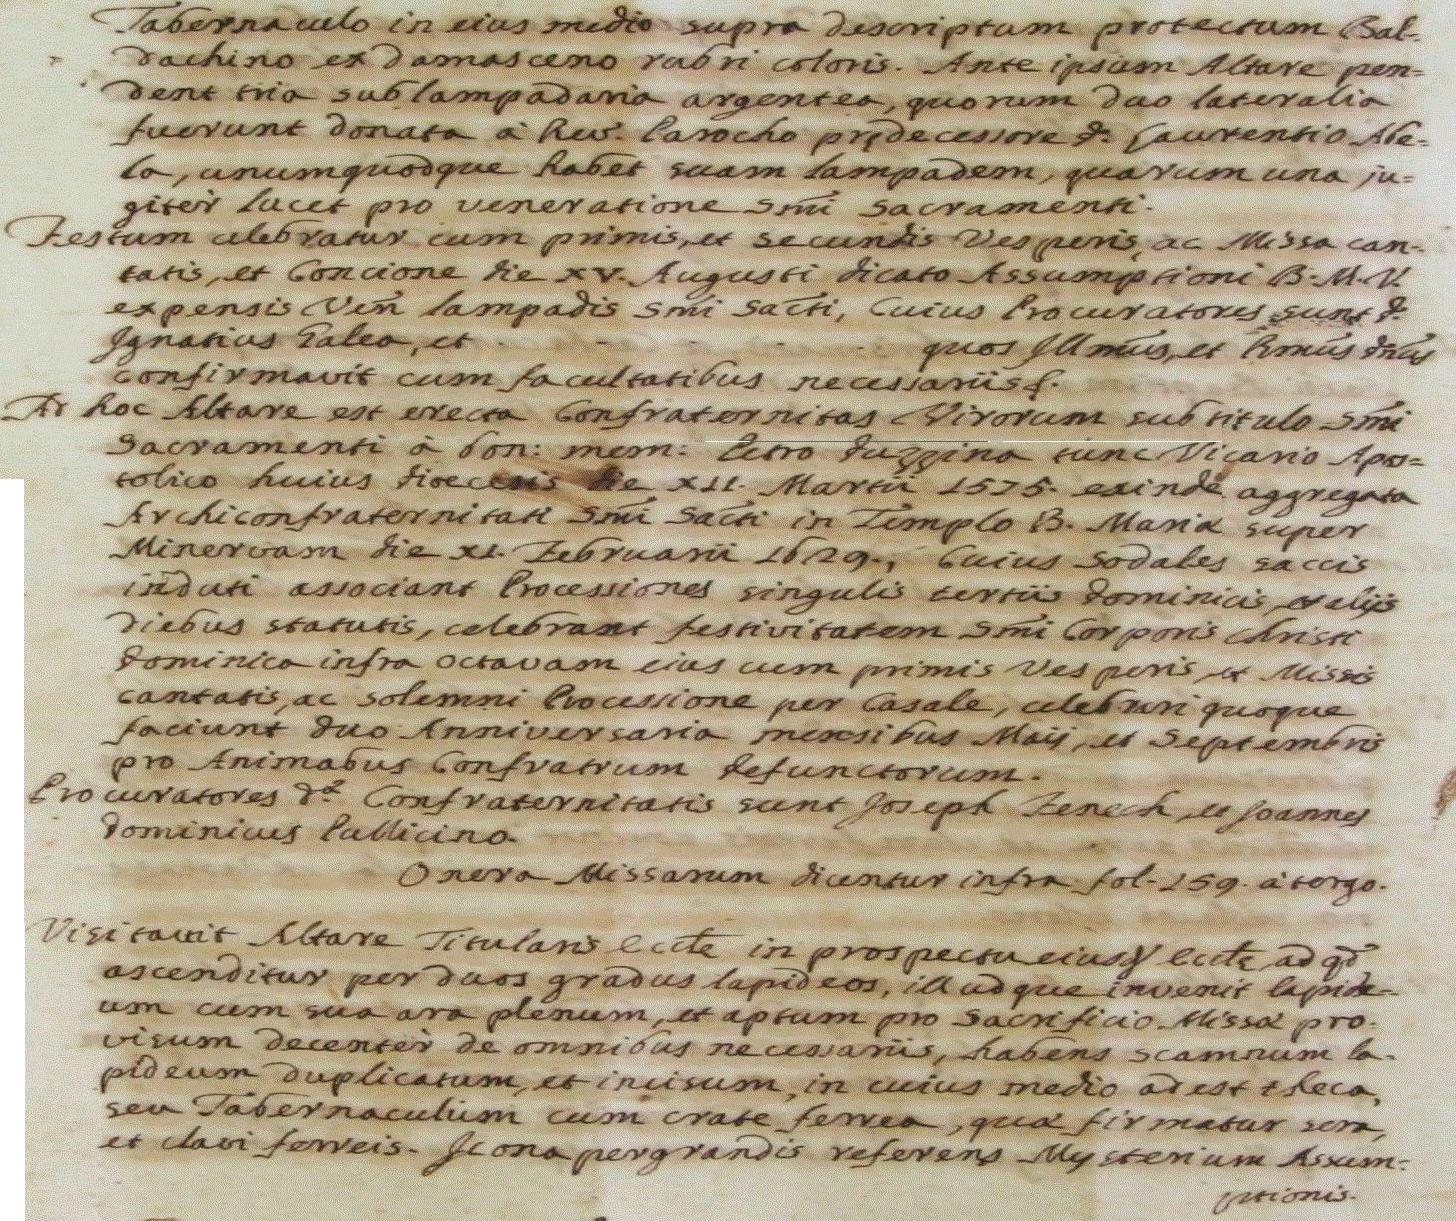 Tabernaculo in eius medio supra descriptum protectum Bal-
dachino ex Damasceno rubri coloris. Ante ipsum Altare pen-
dent tria sublampadaria argentea, quorum duo lateralia
fuerunt donata à Rev. Parocho prędecessore D. Laurentio Abe-
la, unumquodque habet suam lampadem, quarum una iu-
giter lucet pro veneratione Smi Sacramenti.
Festum celebratur cum primis, et secundis Vesperis, ac Missa can-
tatis, et Concione die XV. Augusti dicato Assumptioni B. M. V.
expensis Ven lampadis Smi Sacti, Cuius Procuratores sunt D.
Ignatius Galea, et quos Illmus, et Rmus Dnus
confirmavit cum facultatibus necessariis
Ad hoc Altare est erecta Confraternitas Virorum sub titulo Smi
Sacramenti à bon: mem: Petro Duzzina tunc Vicario Apos-
tolico huius dioecesis die XII. Martii 1575. exinde aggregata
Archiconfraternitati Smi Sacti in Templo B. Mariæ super
Minervam die XI. Februarii 1629., Cuius Sodales saccis
induti associant Processiones singulis tertiis Dominicis, et alijs
diebus statutis, celebrant festivitatem Smi Corporis Christi
Dominica infra octavam eius cum primis Vesperis, et Missis
cantatis, ac solemni Processione per Casale, celebrari quoque
faciunt duo Anniversaria mensibus Maij, et Septembris
pro Animabus Confratrum defunctorum.
Procuratores dæ Confraternitatis sunt Joseph Zenech, et Joannes
Dominicus Pullicino.
Onera Missarum dicentur infra fol. 159. à tergo.
Visitavit Altare Titularis Eccle in prospectu eiusd Eccle ad qd
ascenditur per duos gradus lapideos, illudque invenit lapide-
um cum sua ara plenum, et aptum pro Sacrificio Missæ pro-
visum decentèr de omnibus necessariis, habens scamnum la-
pideum duplicatum, et incisum, in cuius medio adest theca,
seu Tabernaculum cum crate ferrea, quæ firmatur sera,
et clavi ferreis. Icona pergrandis referens Mysterium Assum-
ptionis.